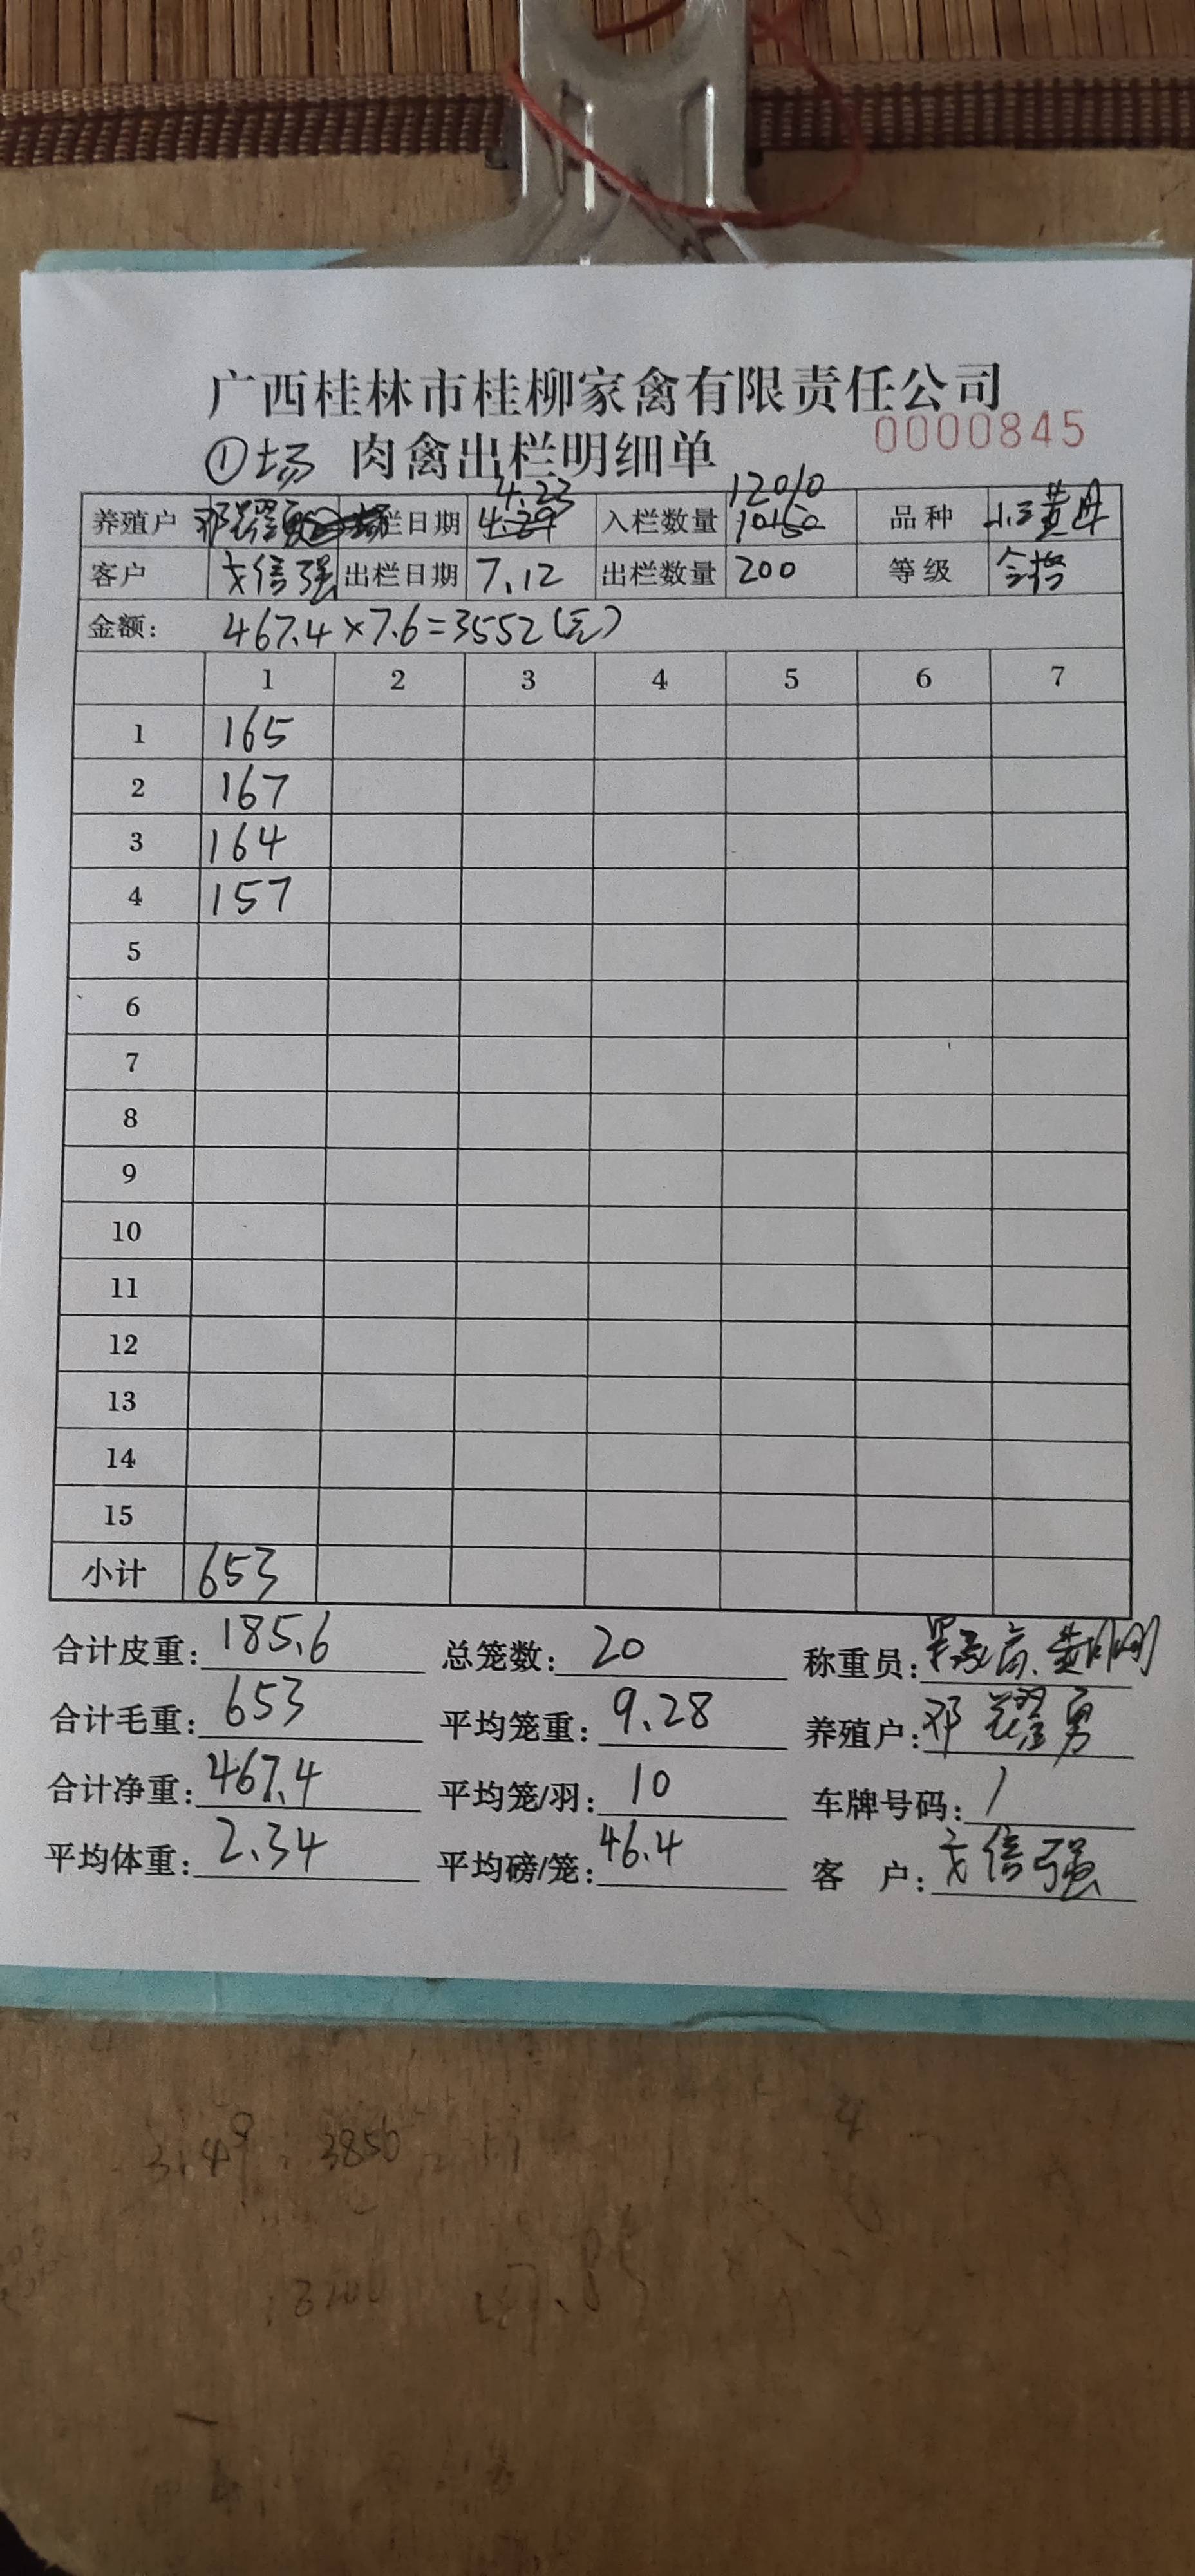 广西桂林市桂柳家禽有限责任公司
①场 肉禽出栏明细单 0000845
养殖户 邓耀勇 栏日期 4.23 4.29 入栏数量 12010 10150 品种 小三黄母
客户 戈倍强 出栏日期 7.12 出栏数量 200 等级 合格
金额: 467.4×7.6=3552(元)
1 2 3 4 5 6 7
1 165
2 167
3 164
4 157
5
6
7
8
9
10
11
12
13
14
15
小计 653
合计皮重: 185.6 总笼数: 20 称重员:
合计毛重: 653 平均笼重: 9.28 养殖户: 邓耀勇
合计净重: 467.4 平均笼/羽: 10 车牌号码: /
平均体重: 2.34 平均磅/笼: 46.4 客 户: 戈倍强
3850